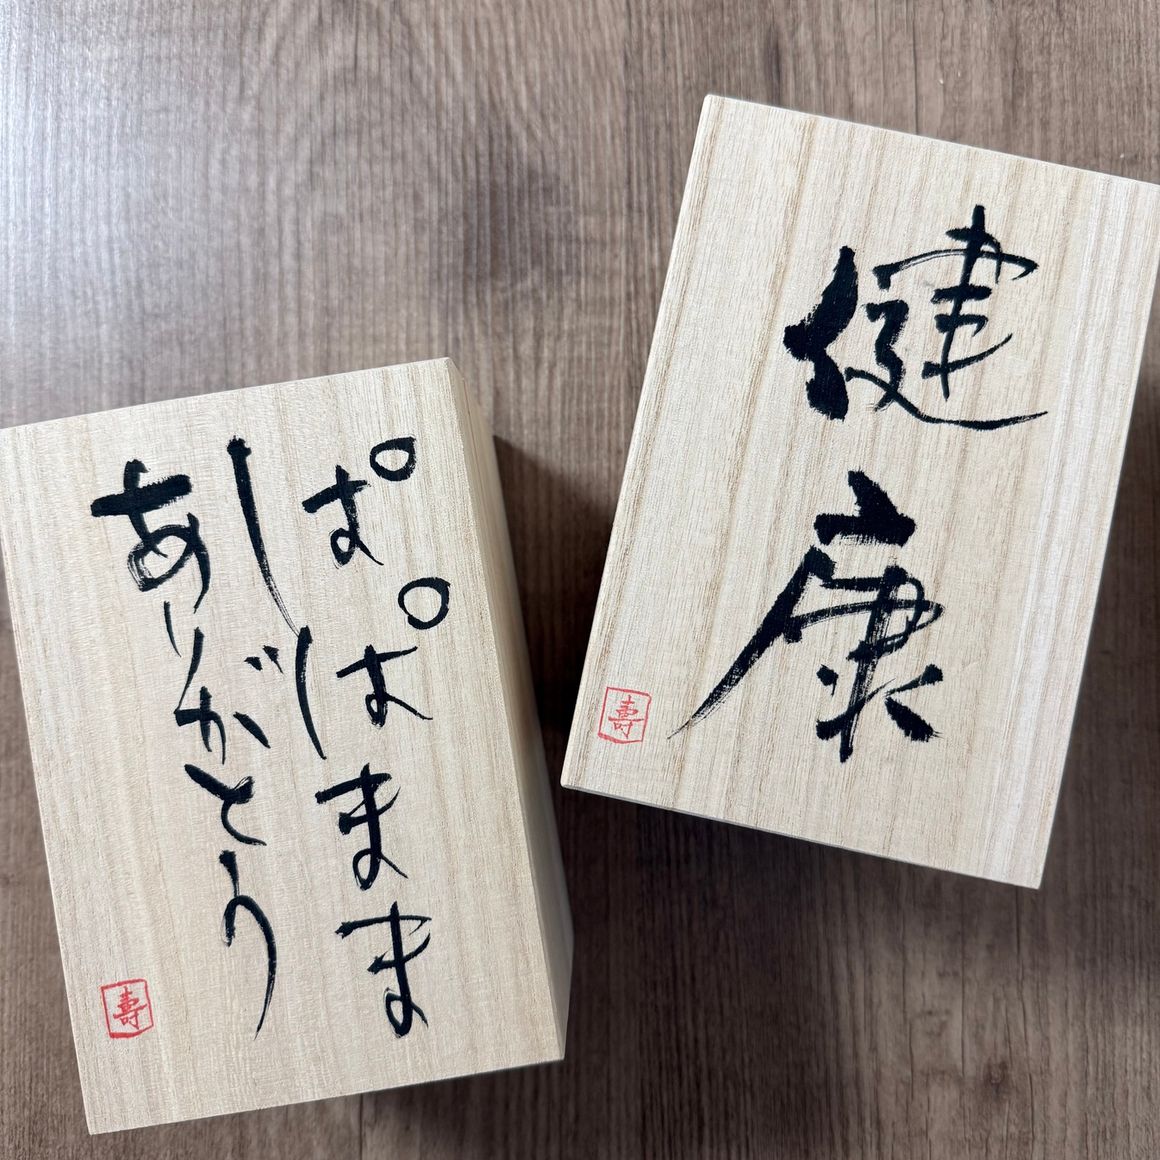 ぱぱまま
ありがとう
壽
健康
壽